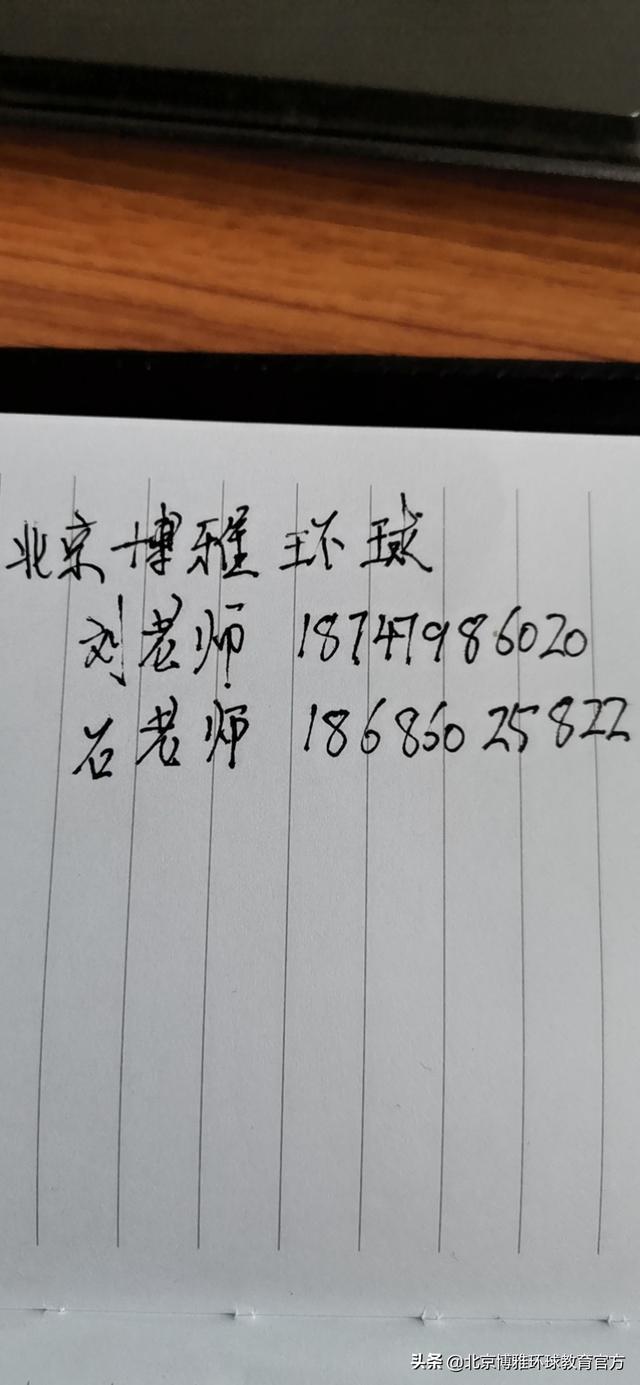 北京博雅环球
刘老师 18747986020
石老师 18686025822
头条 @北京博雅环球教育官方